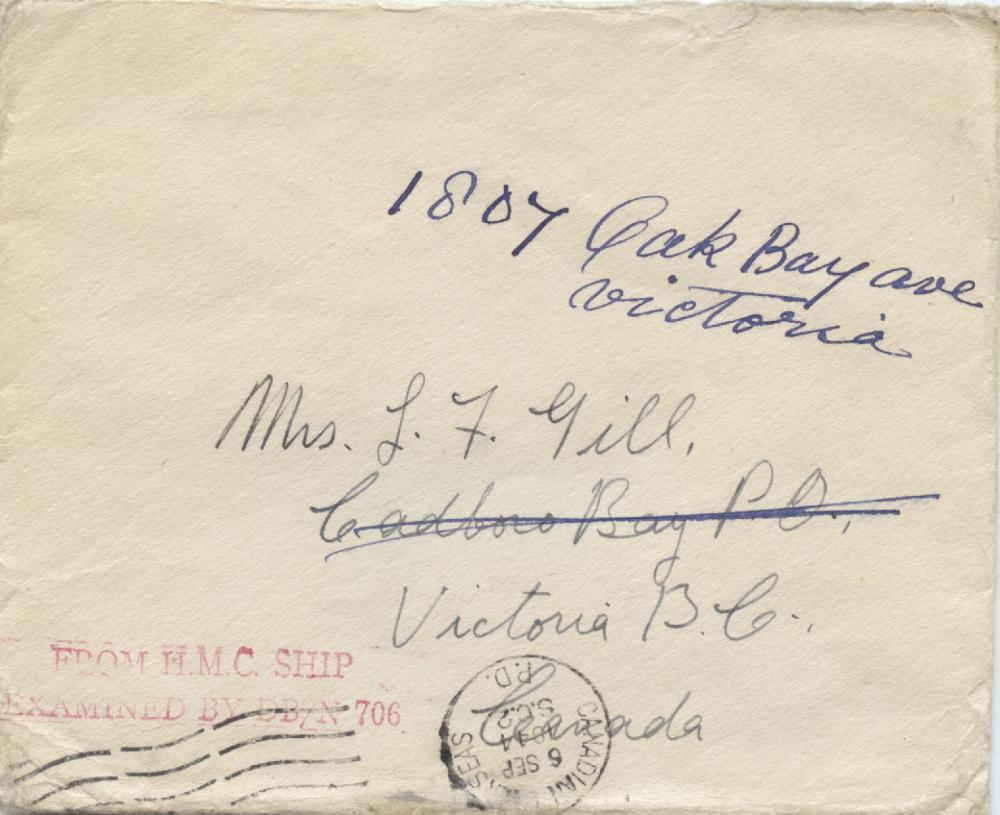 1807 Oak Bay ave
Victoria
Mrs. L. F. Gill,
Cadboro Bay P.O.,
Victoria B.C.,
Canada
FROM H.M.C. SHIP
EXAMINED BY DB/N 706
CANADIAN
SEAS
P.D.
6 SEP
1944
S.C.2